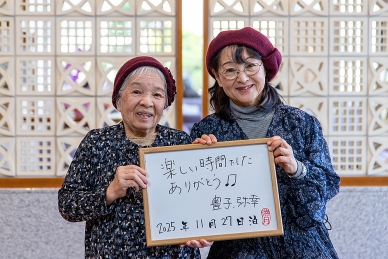 楽しい時間でした
ありがとう♫
豊子、弥幸
2025年11月27日泊